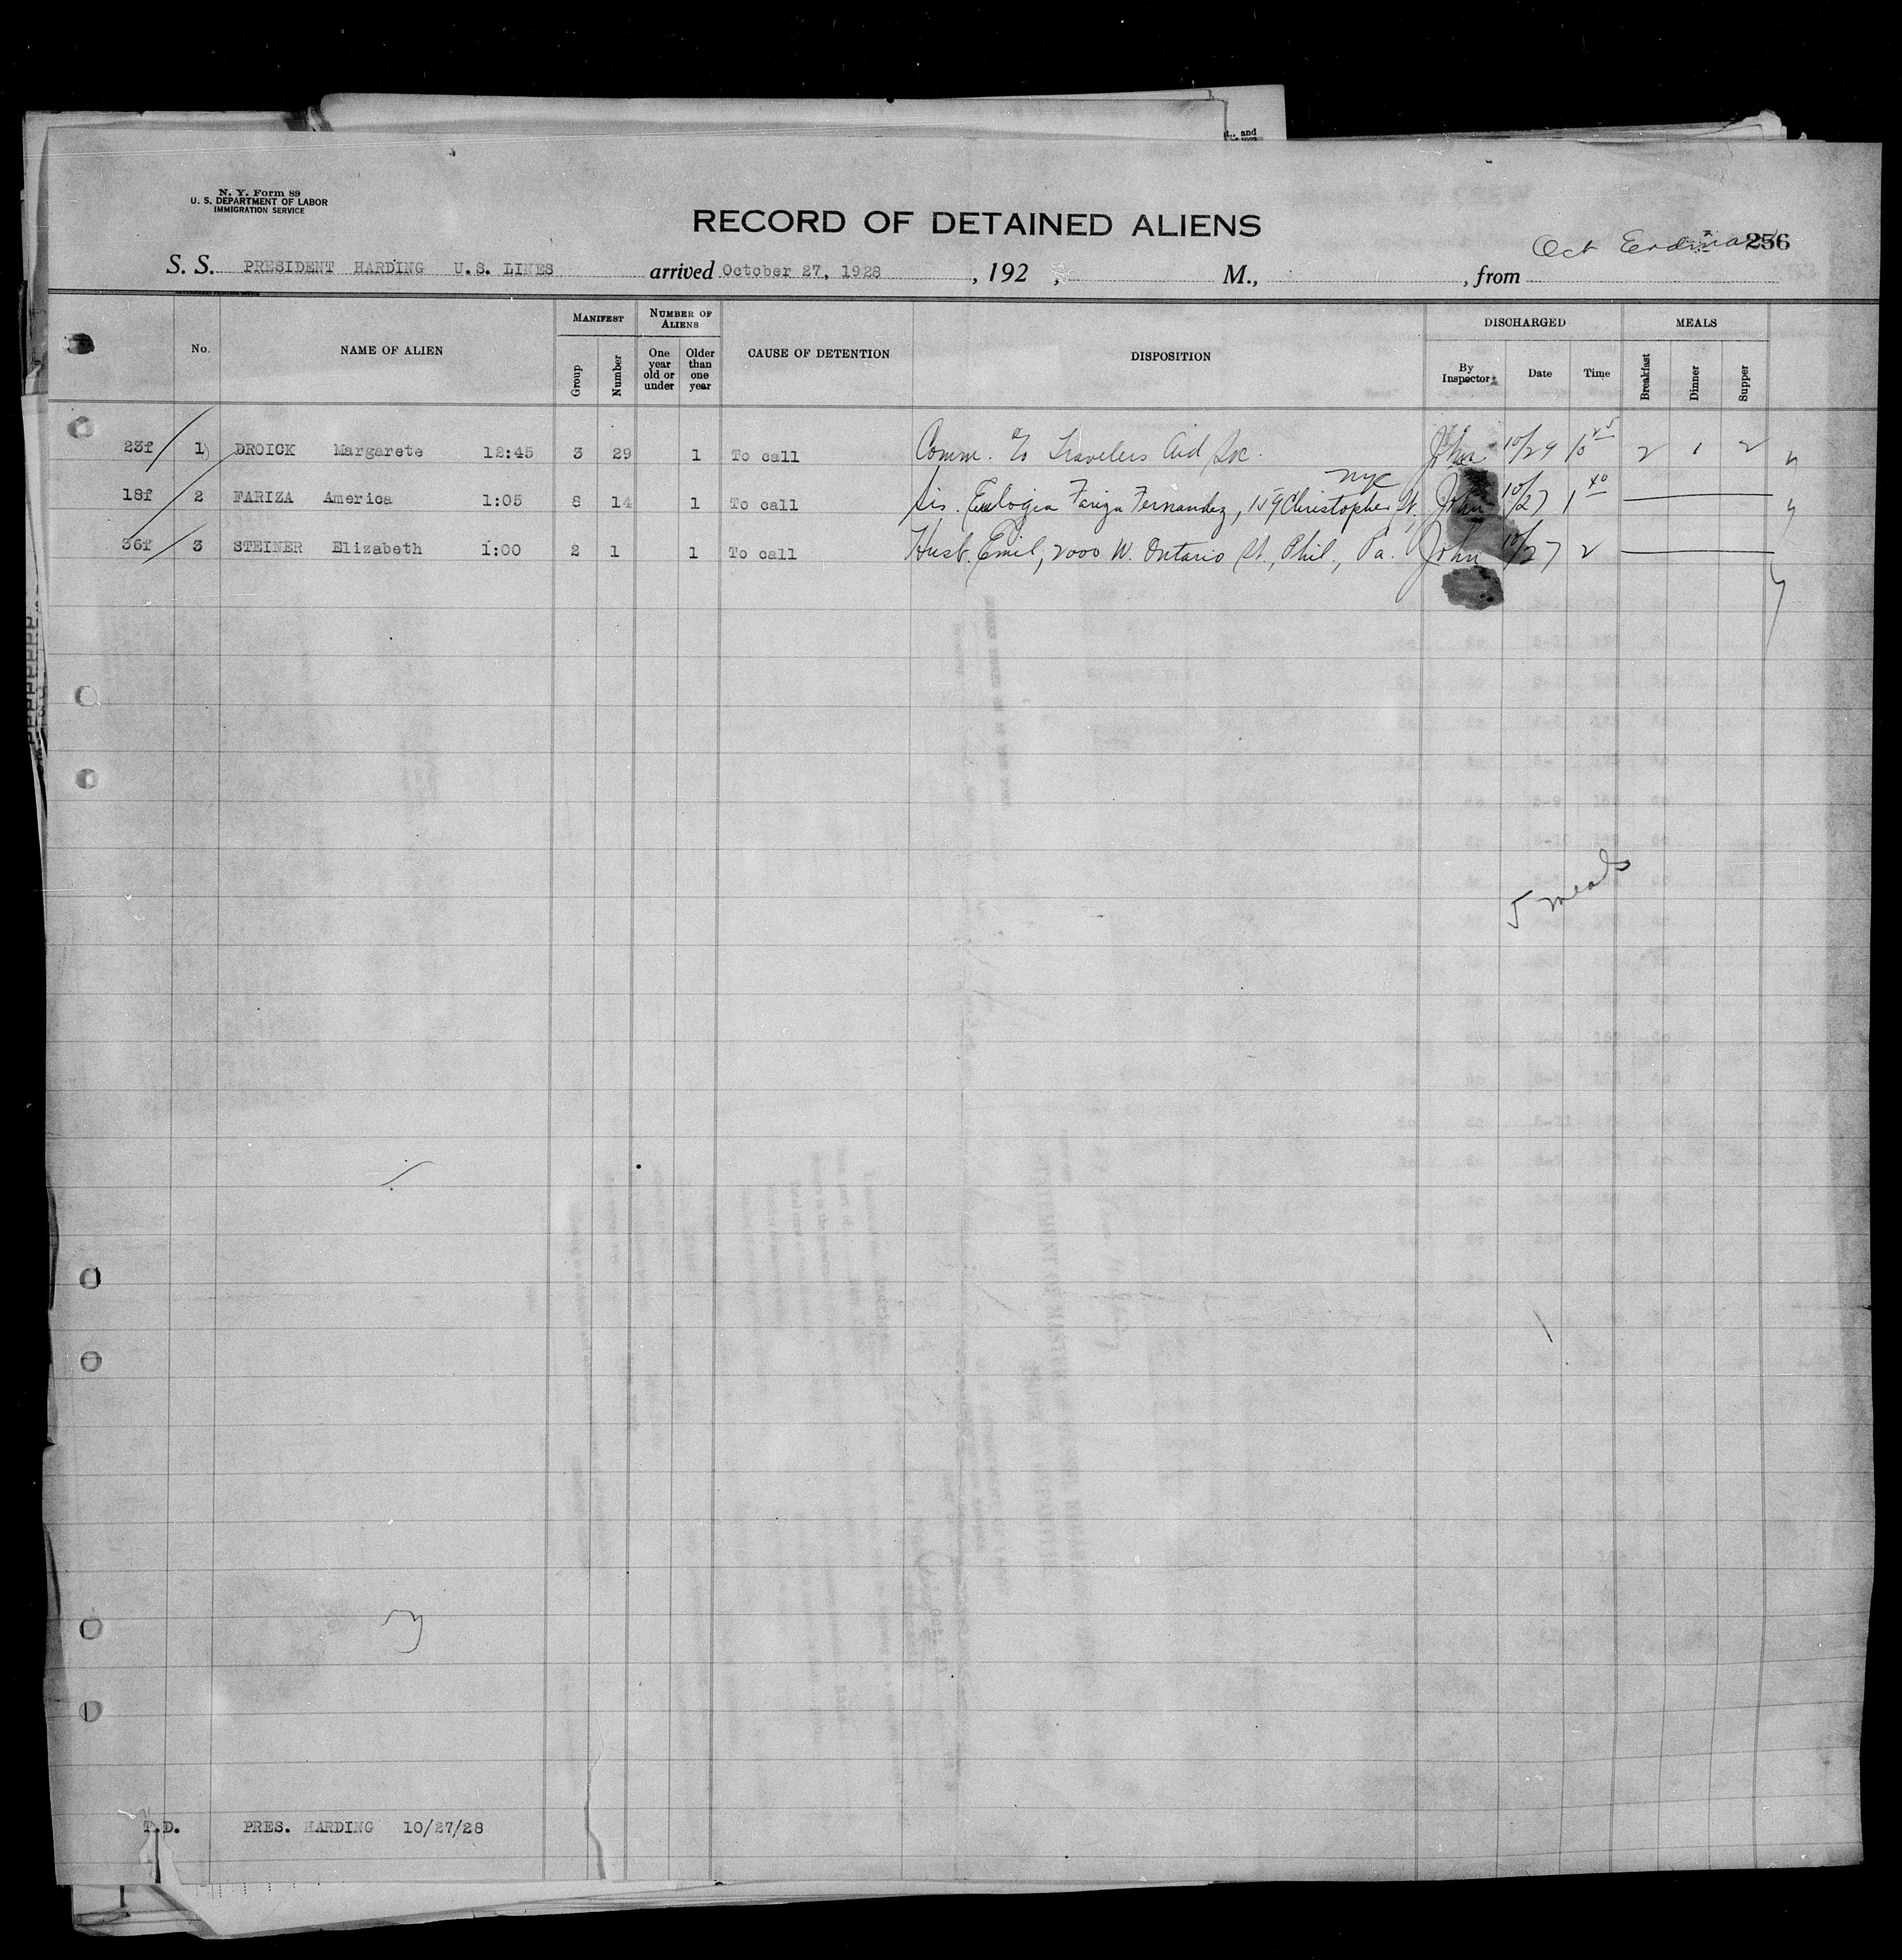 t., and
N. Y. Form 89
U. S. DEPARTMENT OF LABOR
IMMIGRATION SERVICE
RECORD OF DETAINED ALIENS
Oct 256
S. S. PRESIDENT HARDING U.S. LINES arrived October 27, 1928, 192 , M., , from
No. NAME OF ALIEN MANIFEST NUMBER OF ALIENS CAUSE OF DETENTION DISPOSITION DISCHARGED MEALS
Group Number One year old or under Older than one year By Inspector Date Time Breakfast Dinner Supper
23f 1 DROICK Margarete 12:45 3 29 1 To call Comm. to Travelers Aid Soc. John 10/29 10 25 2 1 2
nyc
18f 2 FARIZA America 1:05 8 14 1 To call Sis. Eulogia Fariza Fernandez, 159 Christopher St, John 10/27 1 40
36f 3 STEINER Elizabeth 1:00 2 1 1 To call Husb. Emil, 2000 W. Ontario St., Phil., Pa. John 10/27 2
5 meals
T.D. PRES. HARDING 10/27/28